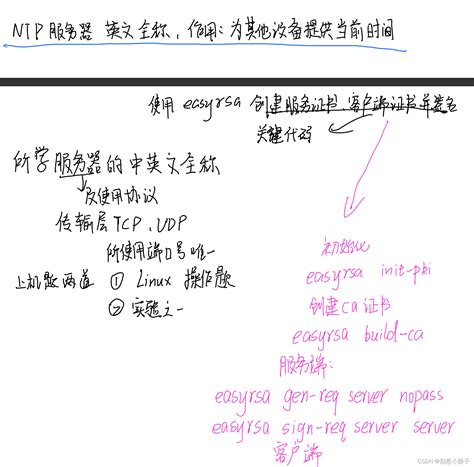 NTP服务器 英文全称，作用：为其他设备提供当前时间
使用 easyrsa 创建服务证书、客户端证书并签名
关键代码
所学服务器的中英文全称
及使用协议
传输层TCP、UDP
所使用端口号唯一
上机题两道 ① Linux 操作题
② 实验之一
初始化
easyrsa init-pki
创建ca证书
easyrsa build-ca
服务端：
easyrsa gen-req server nopass
easyrsa sign-req server server
客户端
CSDN @别惹小娘子